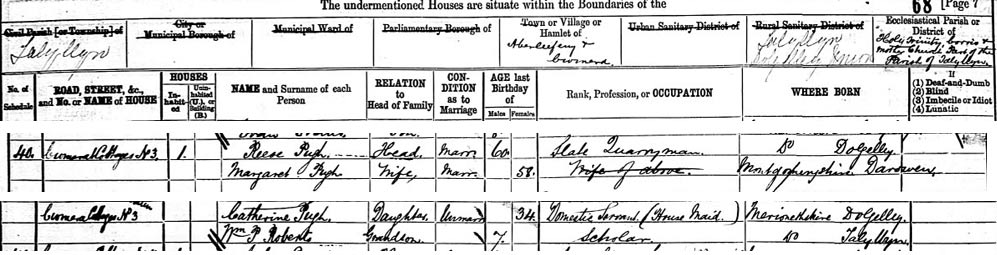 The undermentioned Houses are situate within the Boundaries of the
68 [Page 7
Civil Parish [or Township] of
Talyllyn
City or
Municipal Borough of
Municipal Ward of
Parliamentary Borough of
Town or Village or
Hamlet of
Aberllefeny &
Cwmera
Urban Sanitary District of
Rural Sanitary District of
Talyllyn
Ecclesiastical Parish or
District of
Holy Trinity Corris &
Mother Church Part of the
Parish of Talyllyn
No. of
Schedule
ROAD, STREET, &c.,
and No. or NAME of HOUSE
HOUSES
In-
habit-
ed
Unin-
habited
(U.), or
Building
(B.)
NAME and Surname of each
Person
RELATION
to
Head of Family
CON-
DITION
as to
Marriage
AGE last
Birthday
of
Males
Females
Rank, Profession, or OCCUPATION
WHERE BORN
If
(1) Deaf-and-Dumb
(2) Blind
(3) Imbecile or Idiot
(4) Lunatic
40. Cwmera Cottages No 3. 1. Reese Pugh Head Marr 60 Slate Quarryman. Do Dolgelley.
Margaret Pugh Wife, Marr 58. Wife of above. Montgomeryshire Darowen,
Cwmera Cottages No 3 Catherine Pugh. Daughter. Unmarr 34. Domestic Servant (House Maid.) Merionethshire Dolgelley.
Wm P. Roberts Grandson. 7. Scholar. Do Talyllyn.